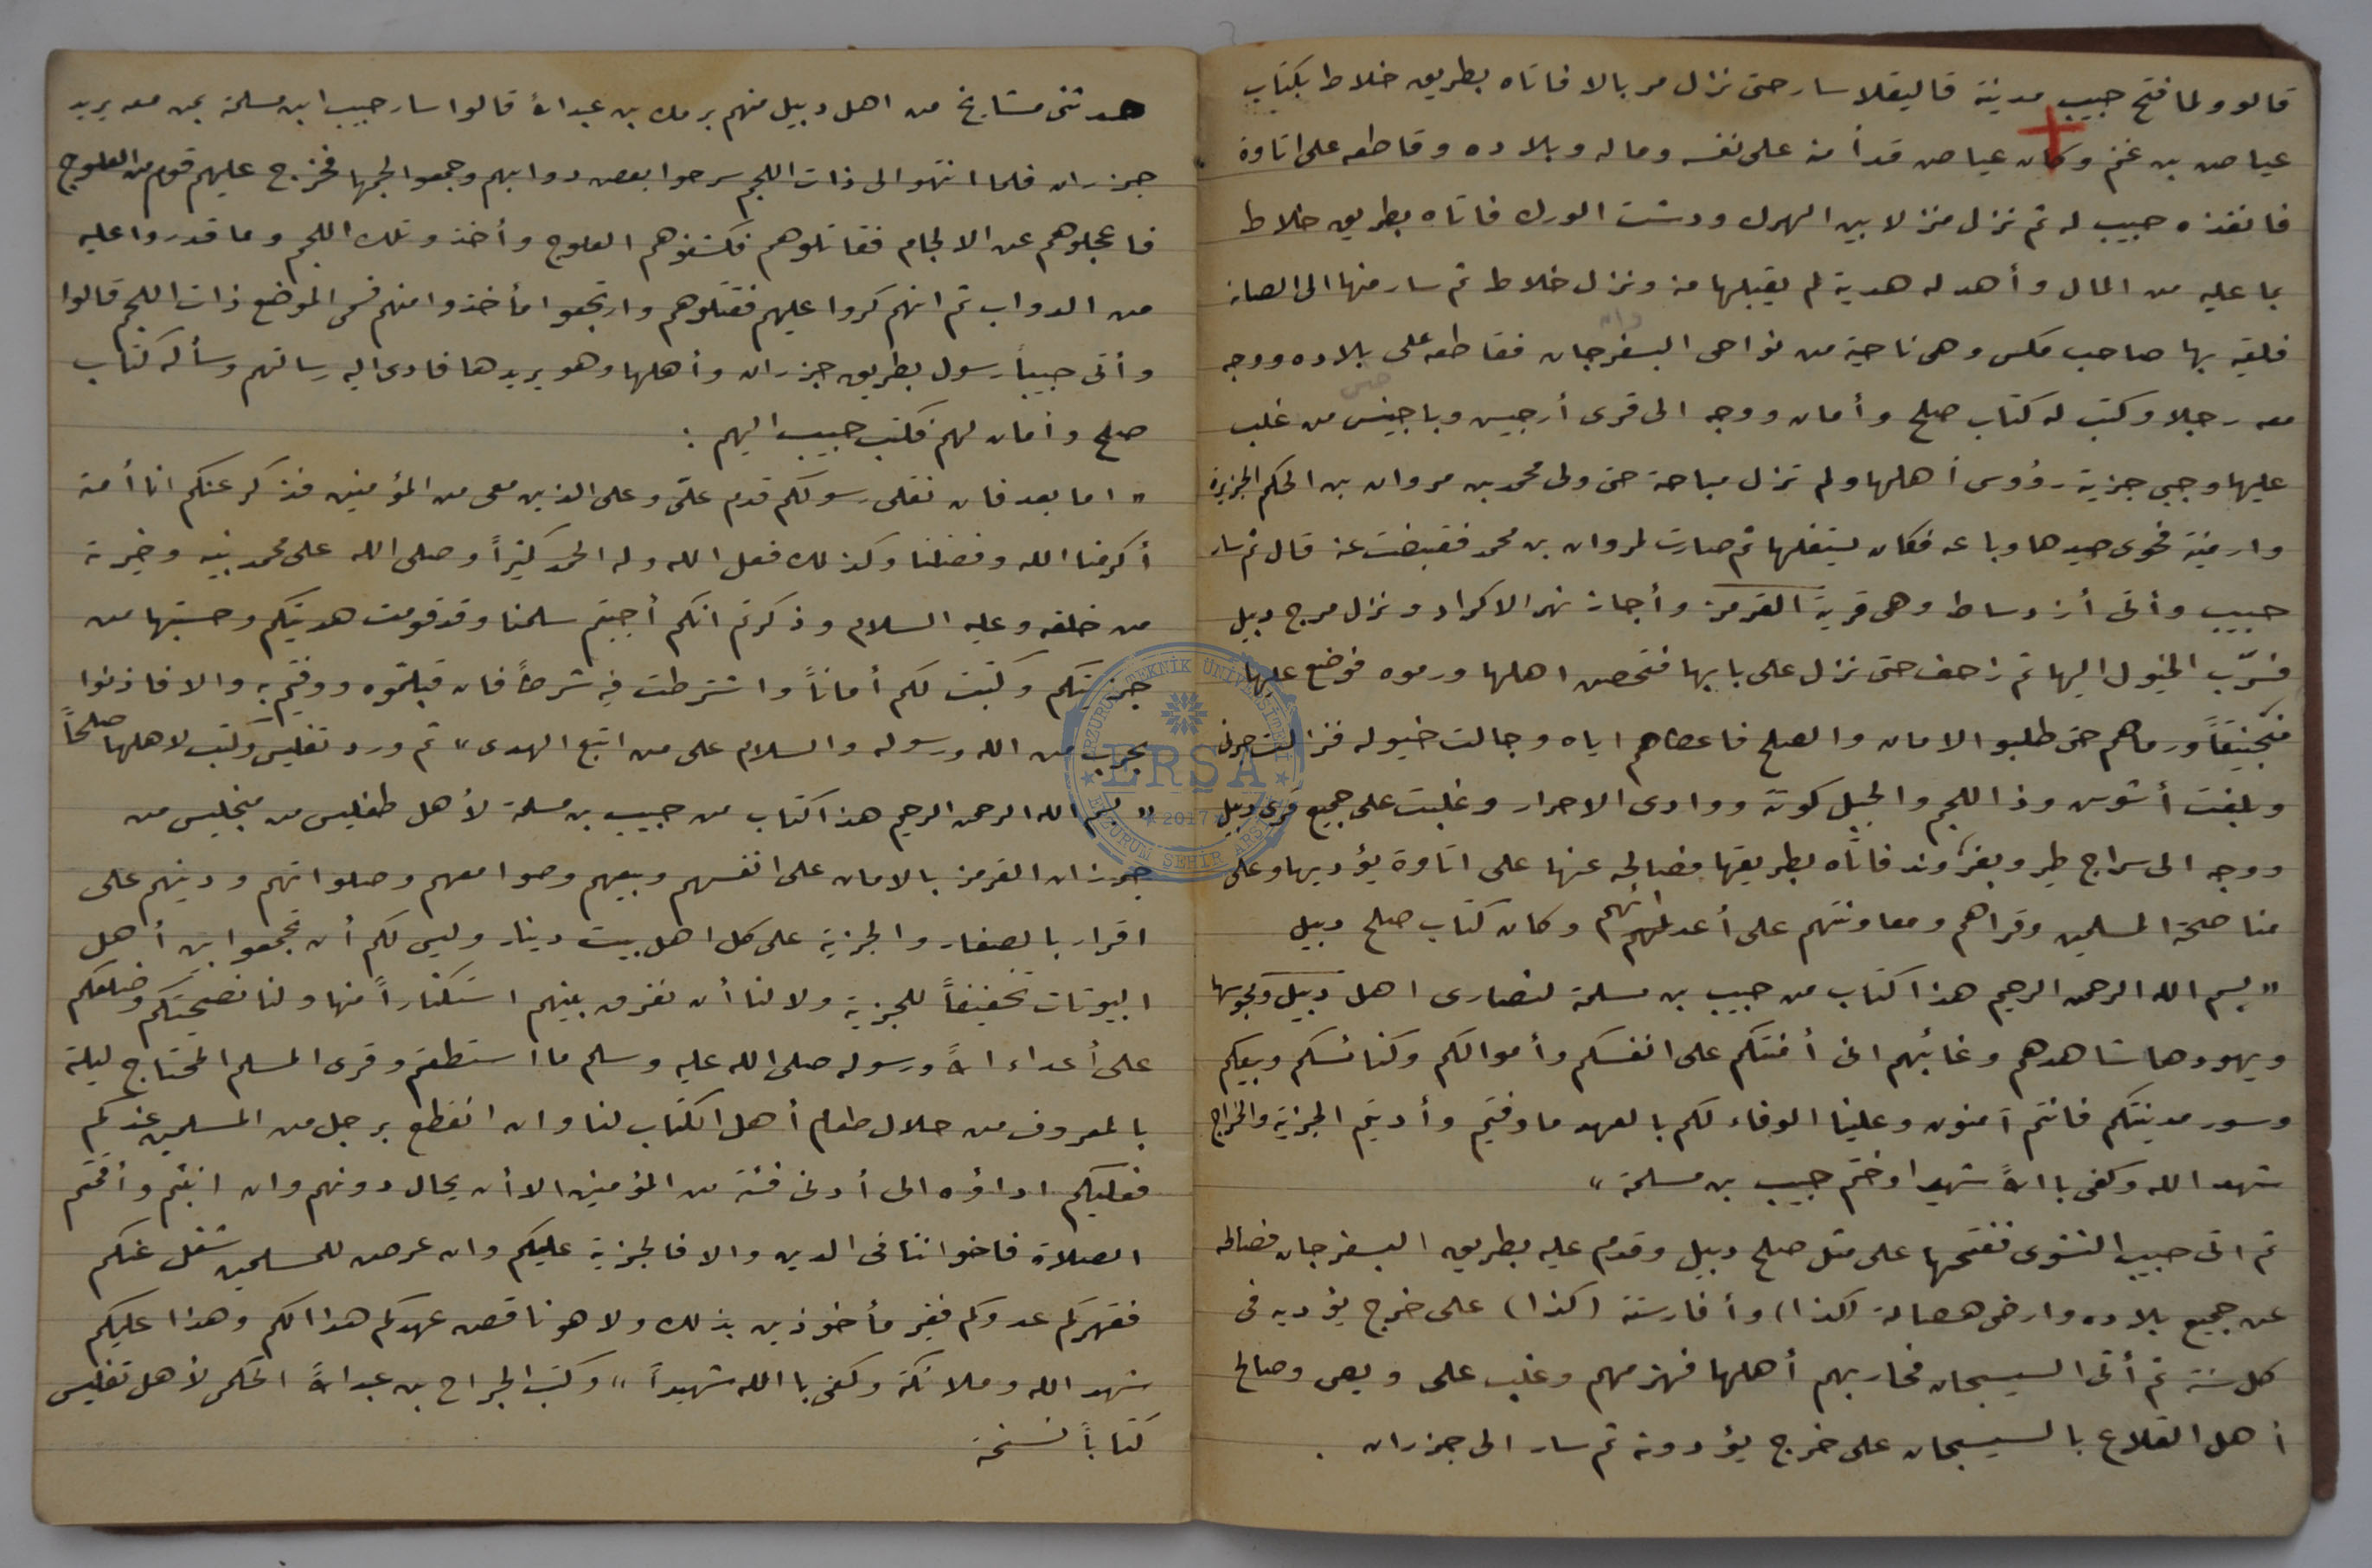 قالو ولما فتح حبيب مدينة قاليقلا سار حتى نزل مربالا فاتاه بطريق خلاط بكتاب
عياض بن غنم وكان عياض قد أمنه على نفسه وماله وبلاده وقاطعه على اتاوة
فانفذه حبيب له ثم نزل منزلا بين الهرك ودشت الورك فاتاه بطريق خلاط
بما عليه من المال وأهد له هدية لم يقبلها منه ونزل خلاط ثم سار منها الى الصانه
فلقيه بها صاحب مكس وهى ناحية من نواحى البسفرجان فقاطعه على بلاده ووجه
معه رجلا وكتب له كتاب صلح وأمان ووجه الى قرى أرجيس وباجنيس من غلب
عليها وجبى جزية رؤوس أهلها ولم تزل مباحة حتى ولى محمد بن مروان بن الحكم الجزيرة
وارمنية فحوى صيدها وباعه فكان يستغلها ثم صارت لمروان بن محمد فقبضت عنه قال ثم سار
حبيب وأتى أزدساط وهى قرية القرمز وأجاز نهر الاكراد ونزل مرج دبيل
فسرّب الخيول اليها ثم زحف حتى نزل على بابها فتحصن اهلها ورموه فوضع عليها
منجنيقاً ورماهم حتى طلبو الامان والصلح فاعطاهم اياه وجالت خيوله فنزالت جرنى
وبلغت أشوس وذا اللجم والجبل كوتة ووادى الاحرار وغلبت على جميع قرى دبيل
ووجه الى سراج طير وبغروند فاتاه بطريقها فصالحه عنها على اتاوة يؤديها وعلى
مناصحة المسلمين وقراهم ومعاونتهم على أعدائهم وكان كتاب صلح دبيل
" بسم الله الرحمن الرحيم هذا كتاب من حبيب بن مسلمة لنصارى اهل دبيل ومجوسها
ويهودها شاهدهم وغائبهم انى أمنتكم على انفسكم وأموالكم وكنائسكم وبيعكم
وسور مدينتكم فانتم آمنون وعلينا الوفاء لكم بالعهد ما وفيتم وأديتم الجزية والخراج
شهد الله وكفى بالله شهيدا وختم حبيب بن مسلمة "
ثم اتى حبيب النشوى ففتحها على مثل صلح دبيل وقدم عليه بطريق البسفرجان فصالحه
عن جميع بلاده وارضى هصابلة (كذا) وأفارستة (كذا) على خرج يؤديه فى
كل سنة ثم أتى السيسجان فحاربهم أهلها فهزمهم وغلب على ويص وصالح
أهل القلاع بالسيسجان على خرج يؤدونه ثم سار الى جرزان .
حدثنى مشايخ من اهل دبيل منهم برمك بن عبدالله قالوا سار حبيب ابن مسلمة بمن معه يريد
جرزان فلما انتهو الى ذات اللجم سرحوا بعض دوابهم وجمعوا لجمها فخرج عليهم قوم من العلوج
فاعجلوهم عن الالجام فقاتلوهم فكشفوهم العلوج وأخذو تلك اللجم وما قدروا عليه
من الدواب ثم انهم كروا عليهم فقتلوهم وارتجعوا مأخذوا منهم فسمى الموضع ذات اللجم قالوا
وأتى حبيباً رسول بطريق جرزان وأهلها وهو يريدها فادى اليه رسالتهم وسأله كتاب
صلح وأمان لهم فكتب حبيب اليهم :
" اما بعد فان نقلى رسولكم قدم علىّ وعلى الذين معى من المؤمنين فذكر عنكم انا أمة
أكرمنا الله وفضلنا وكذلك فعل الله وله الحمد كثيراً وصلى الله على محمد نبيه وخيرته
من خلقه وعليه السلام وذكرتم انكم أحببتم سلمنا وقد قومت هديتكم وحسبتها من
جزيتكم وكتبت لكم أماناً واشترطت فيه شرطاً فان قبلتموه ووفيتم به والا فاذنوا
بحرب من الله ورسوله والسلام على من اتبع الهدى " ثم ورد تفليس وكتب لاهلها صلحاً
" بسم الله الرحمن الرحيم هذا كتاب من حبيب بن مسلمة لأهل طفليس من منجليس من
جرزان القرمز بالامان على انفسهم وبيعهم وصوامعهم وصلواتهم ودينهم على
اقرار بالصغار والجزية على كل اهل بيت دينار وليس لكم أن تجمعوا بين أهل
البيوتات تخفيفاً للجزية ولا لنا أن نفرق بينهم استكثاراً منها ولنا نصيحتكم وضلعكم
على أعداء الله ورسوله صلى الله عليه وسلم ما استطعتم وقرى المسلم المحتاج ليلة
بالمعروف من حلال طعام أهل الكتاب لنا وان انقطع برجل من المسلمين عندكم
فعليكم اداؤه الى أدنى فئة من المؤمنين الا أن يحال دونهم وان انبتم وأقمتم
الصلاة فاخواننا فى الدين والا فالجزية عليكم وان عرض للمسلمين شغل عنكم
فقهركم عدوكم فغير مأخوذين بذلك ولا هو ناقص عهدكم هذا لكم وهذا عليكم
شهد الله وملائكته وكفى با الله شهيداً " وكتب الجراح بن عبدالله الحكمى لأهل تفليس
كتاباً نسخة
ERZURUM TEKNİK ÜNİVERSİTESİ
ERSA
2017
ERZURUM ŞEHİR ARŞİVİ